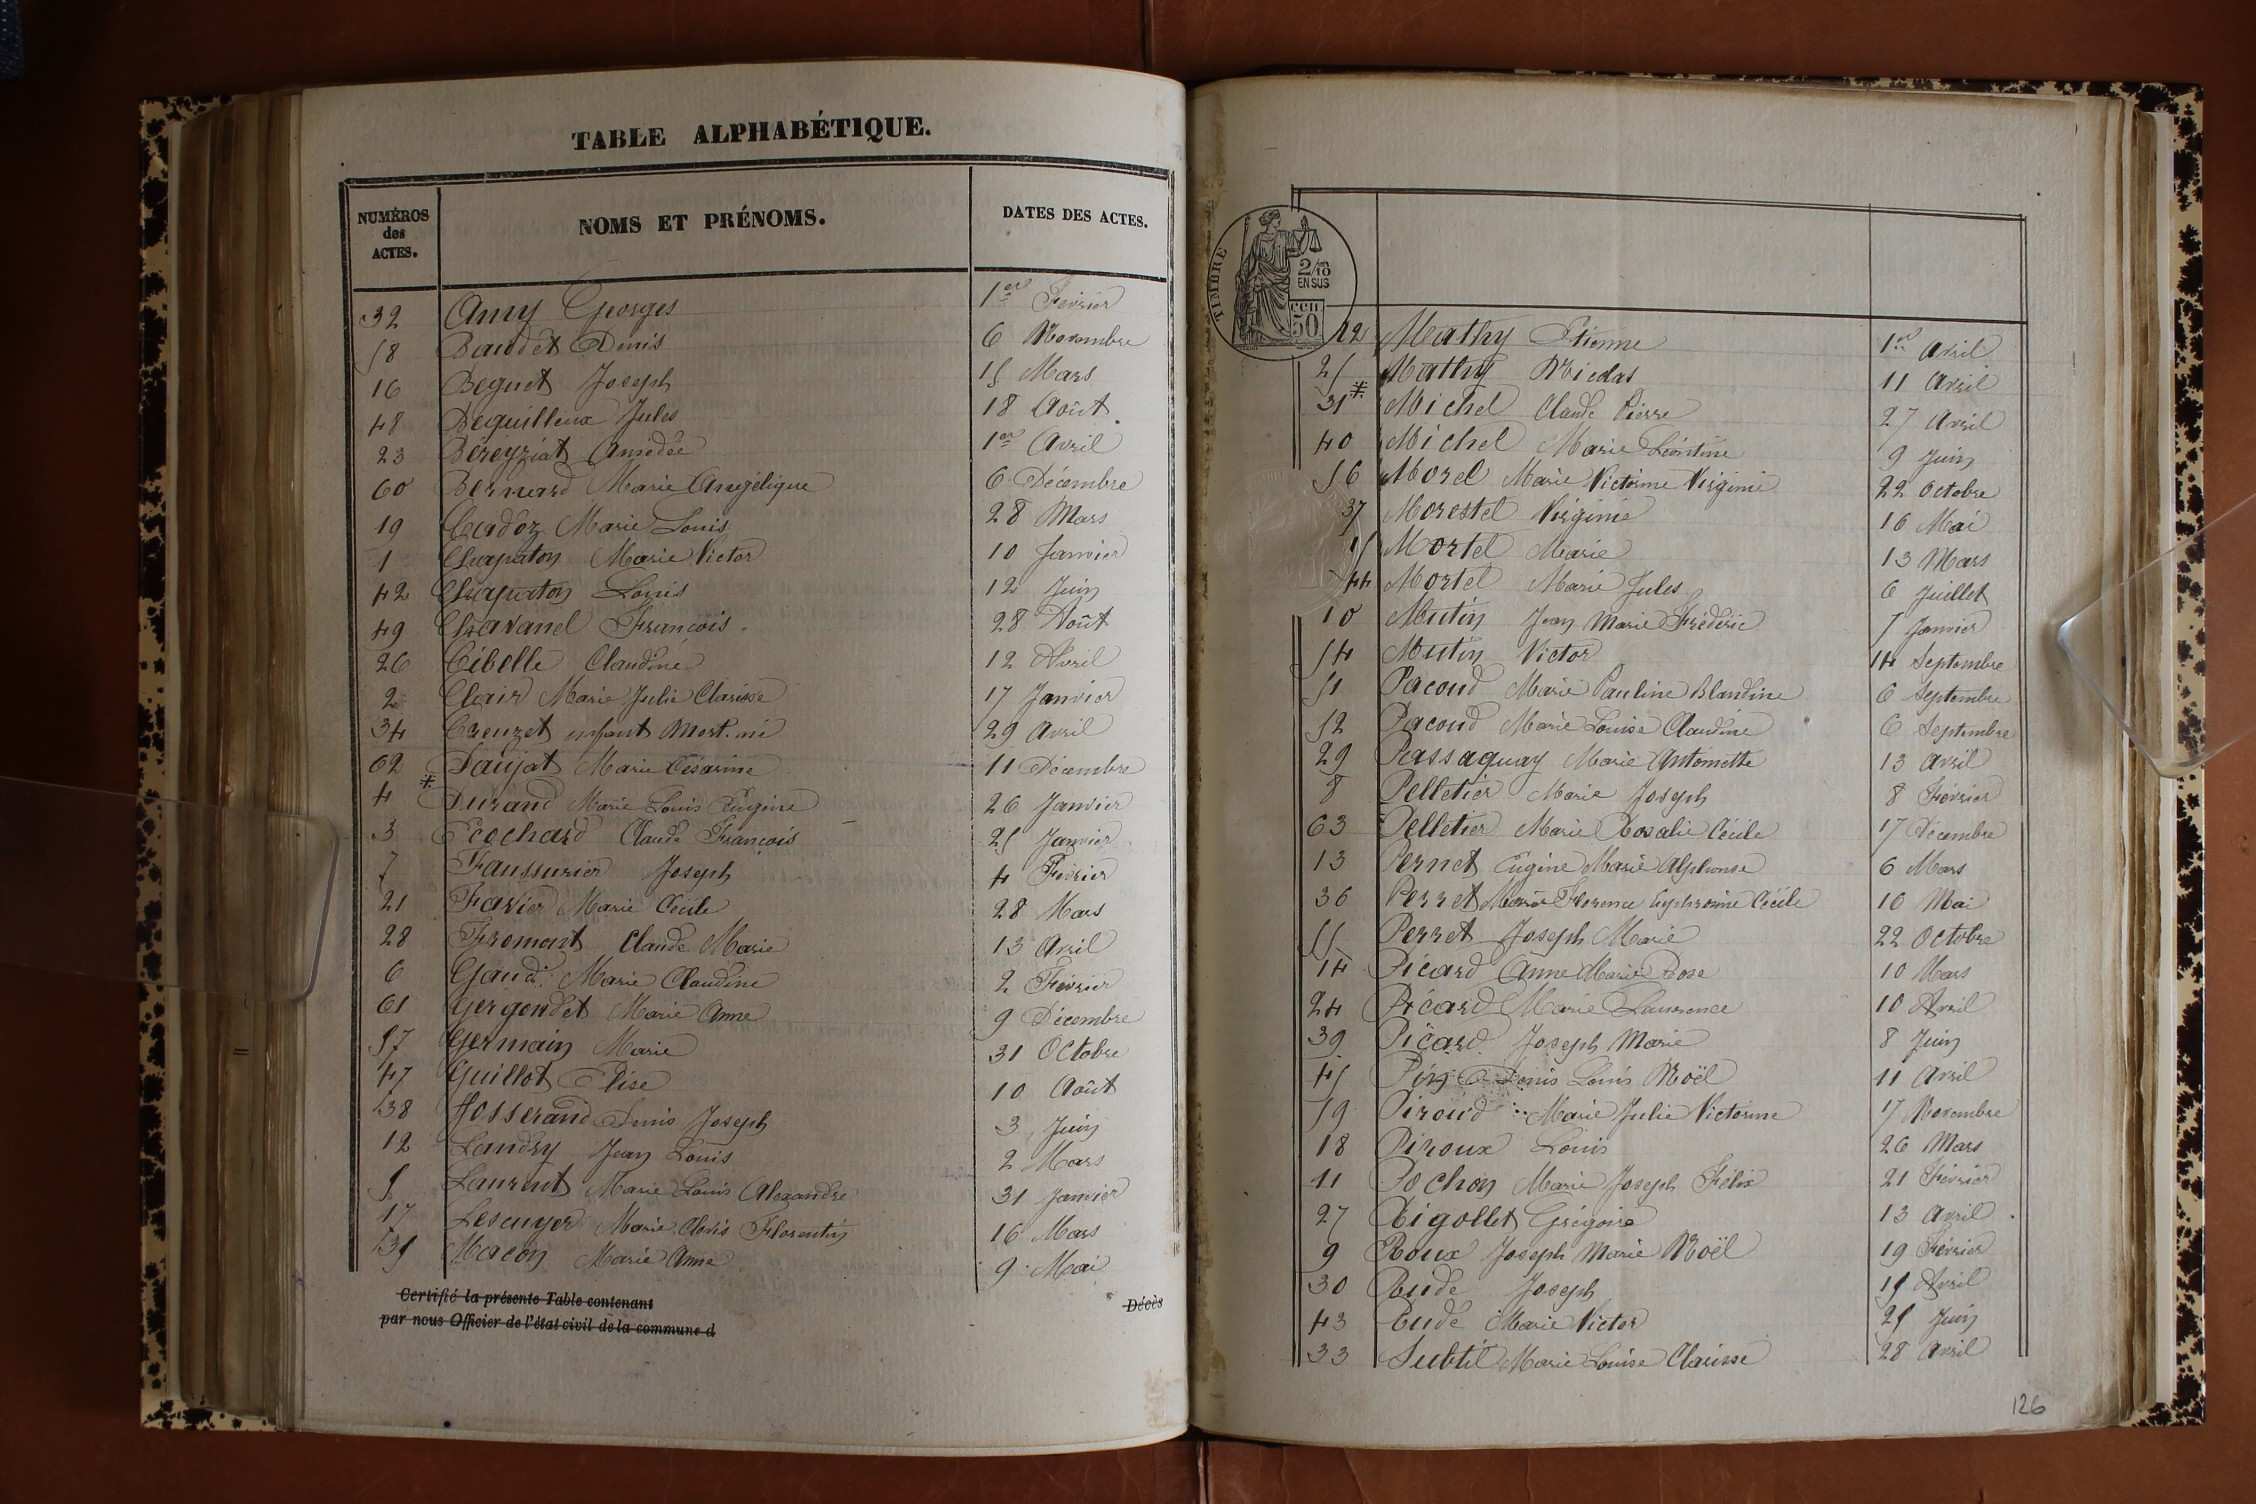 TABLE ALPHABÉTIQUE.
NUMÉROS des ACTES.
NOMS ET PRÉNOMS.
DATES DES ACTES.
32 Amy Georges 1er Février
58 Baudet Denis 6 Novembre
16 Beguet Joseph 15 Mars
48 Beguilleux Jules 18 Août
23 Béreyziat Amédée 1er Avril
60 Bernard Marie Angélique 6 Décembre
19 Cadoz Marie Louis 28 Mars
1 Chapaton Marie Victor 10 Janvier
42 Chapaton Louis 12 Juin
49 Chavanel François 28 Août
26 Cibelle Claudine 12 Avril
2 Clair Marie Julie Clarisse 17 Janvier
34 Creuzet enfant Mort-né 29 Avril
62 Daujat Marie Césarine 11 Décembre
4 * Durand Marie Louis Eugène 26 Janvier
3 Ecochard Claude François 25 Janvier
7 Faussurier Joseph 4 Février
21 Favier Marie Cécile 28 Mars
28 Fromont Claude Marie 13 Avril
6 Gaud Marie Claudine 2 Février
61 Gergondet Marie Anne 9 Décembre
57 Germain Marie 31 Octobre
47 Guillot Elise 10 Août
38 Josserand Denis Joseph 3 Juin
12 Landry Jean Louis 2 Mars
5 Laurent Marie Louis Alexandre 31 Janvier
17 Lescuyer Marie Clovis Florentin 16 Mars
35 Macon Marie Anne 9 Mai
Certifié la présente Table contenant Décès
par nous Officier de l'état civil de la commune d
TIMBRE
2/10 EN SUS
50
22 Mathy Etienne 1er Avril
25 Mathy Nicolas 11 Avril
31 * Michel Claude Pierre 27 Avril
40 Michel Marie Léontine 9 Juin
56 Morel Marie Victorine Virginie 22 Octobre
37 Morestel Virginie 16 Mai
15 Mortel Marie 13 Mars
44 Mortel Marie Jules 6 Juillet
10 Mutin Jean Marie Frédéric Janvier
54 Mutin Victor 14 Septembre
51 Pacoud Marie Pauline Blandine 6 Septembre
52 Pacoud Marie Louise Claudine 6 Septembre
29 Passaquay Marie Antoinette 13 Avril
8 Pelletier Marie Joseph 8 Février
63 Pelletier Marie Rosalie Cécile 17 Décembre
13 Pernet Eugène Marie Alphonse 6 Mars
36 Perret Marie Florence Cécile 10 Mai
55 Perret Joseph Marie 22 Octobre
14 Picard Anne Marie Rose 10 Mars
24 Picard Marie Laurence 10 Avril
39 Picard Joseph Marie 8 Juin
45 Pin Denis Louis Noël 11 Avril
59 Piroud Marie Julie Victorine 17 Novembre
18 Piroux Louis 26 Mars
11 Pochon Marie Joseph Félix 21 Février
27 Rigollet Grégoire 13 Avril
9 Roux Joseph Marie Noël 19 Février
30 Rude Joseph 15 Avril
43 Rude Marie Victor 25 Juin
33 Subtil Marie Louise Clarisse 28 Avril
126